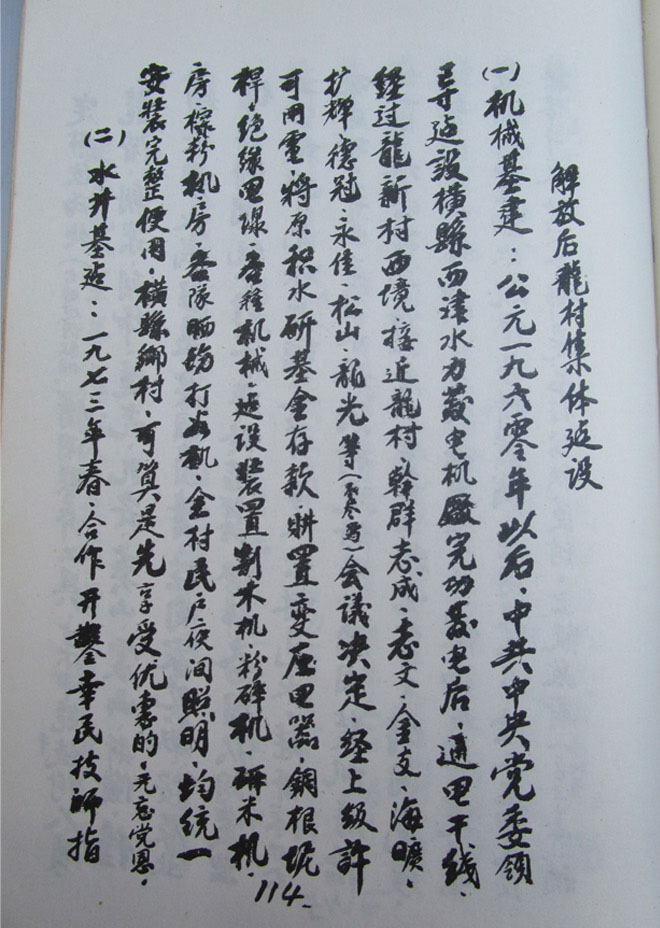 解放后龍村集体延設
㈠机械基建：公元一九六零年以后，中共中央党委領
导延設横縣西津水力發电机廠完功發电后，通电干线，
经过龍新村西境，接近龍村，幹群志成、志文、金支、海曠、
扩輝、德冠、永佳、松山、龍光等（　）会議决定，经上级許
可用電，将原积水研基金存款，购置变压电器，銅根坭
桿，绝缘电線，各種机械，延設装置割木机，粉碎机，研米机，
房，榨粉机房，各隊晒場打谷机，全村民户夜间照明，均统一
安装完整使用，横縣鄉村，可算是先享受优惠的，无忘党恩，
㈡水井基延：一九七三年春，合作开鑿幸民技師指
114